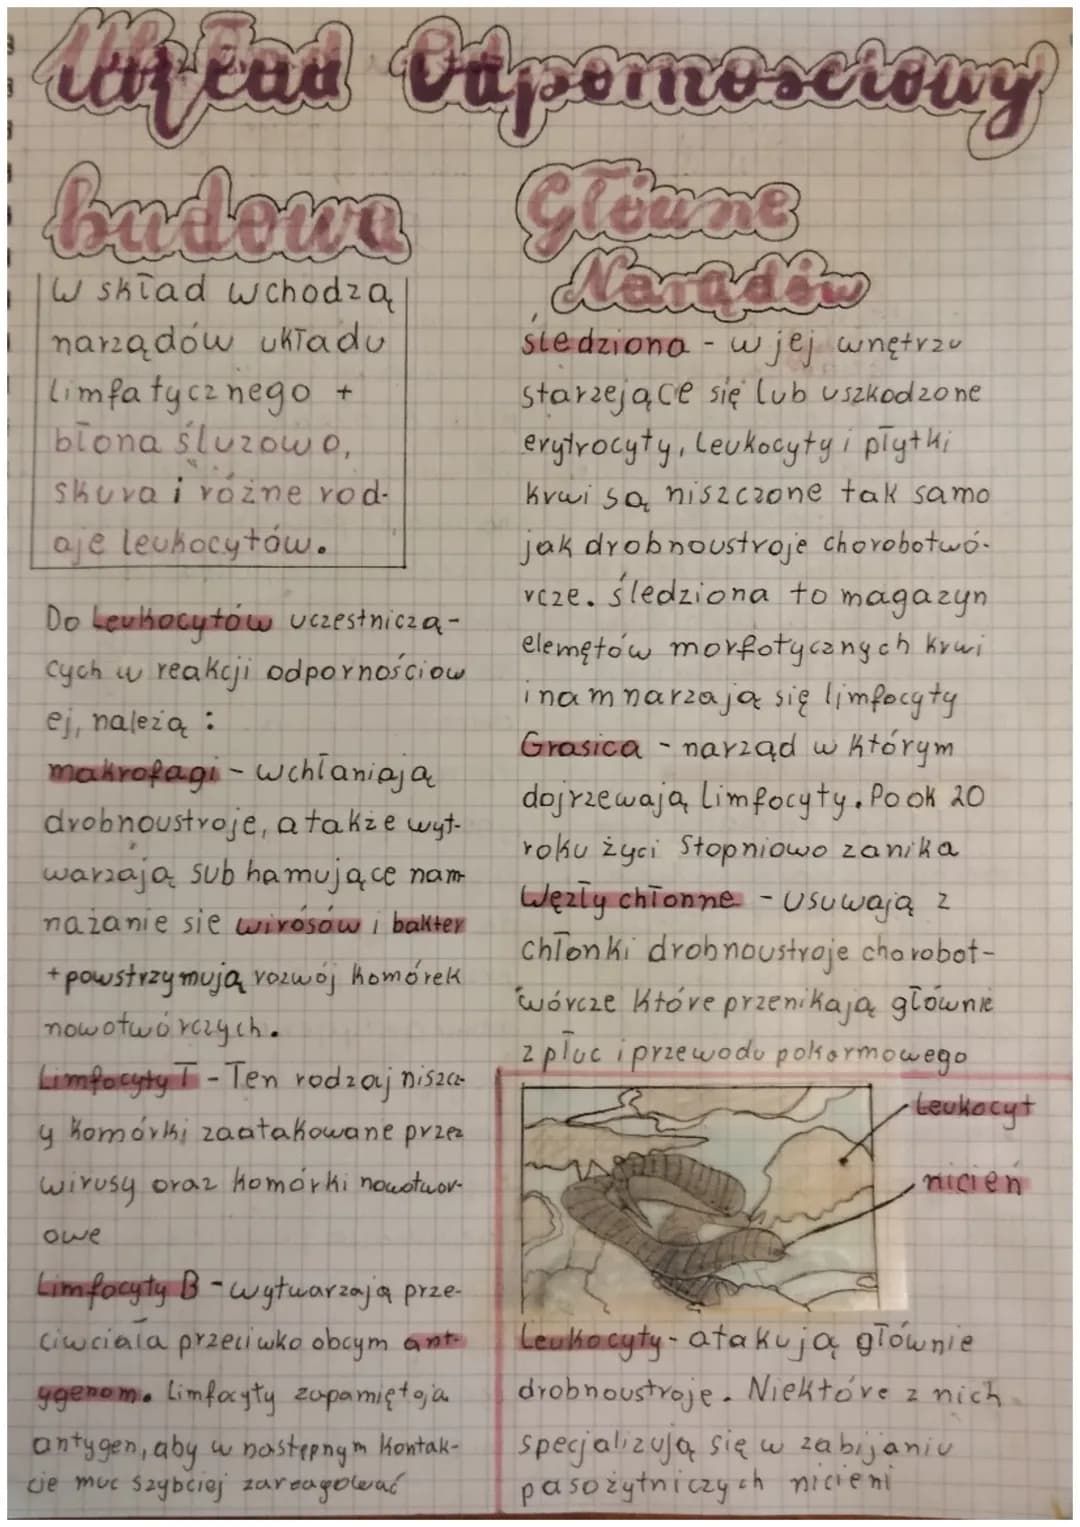 Układ Odpornościowy
budowa
W skład wchodzą
narządów układu
limfatycznego +
błona śluzowa,
skura i różne rod-
aje leukocytów.
Do Leukocytów uczestniczą-
cych w reakcji odpornościow
ej, należą :
makrofagi - wchłaniają
drobnoustroje, a także wyt-
warzają sub hamujące nam-
nażanie sie wirósów i bakter
+ powstrzymują rozwój komórek
nowotwórczych.
Limfocyty T - Ten rodzaj niszcz-
y komórki zaatakowane przez
wirusy oraz komórki nowotwor-
owe
Limfocyty B - wytwarzają prze-
ciwciała przeciwko obcym ant-
ygenom. Limfocyty zapamiętają
antygen, aby w następnym kontak-
cie muc szybciej zareagować
Główne
Narządów
śledziona - w jej wnętrzu
starzejące się lub uszkodzone
erytrocyty, leukocyty i płytki
krwi są niszczone tak samo
jak drobnoustroje chorobotwó-
rcze. śledziona to magazyn
elemętów morfotycznych krwi
i nam narzają się limfocyty
Grasica - narząd w którym
dojrzewają limfocyty. Po ok 20
roku życi stopniowo zanika
Węzły chłonne - usuwają z
chłonki drobnoustroje chorobot-
wórcze które przenikają głównie
z płuc i przewodu pokarmowego
leukocyt
nicień
Leukocyty - atakują głównie
drobnoustroje. Niektóre z nich
specjalizują się w zabijaniu
pasożytniczych nicieni